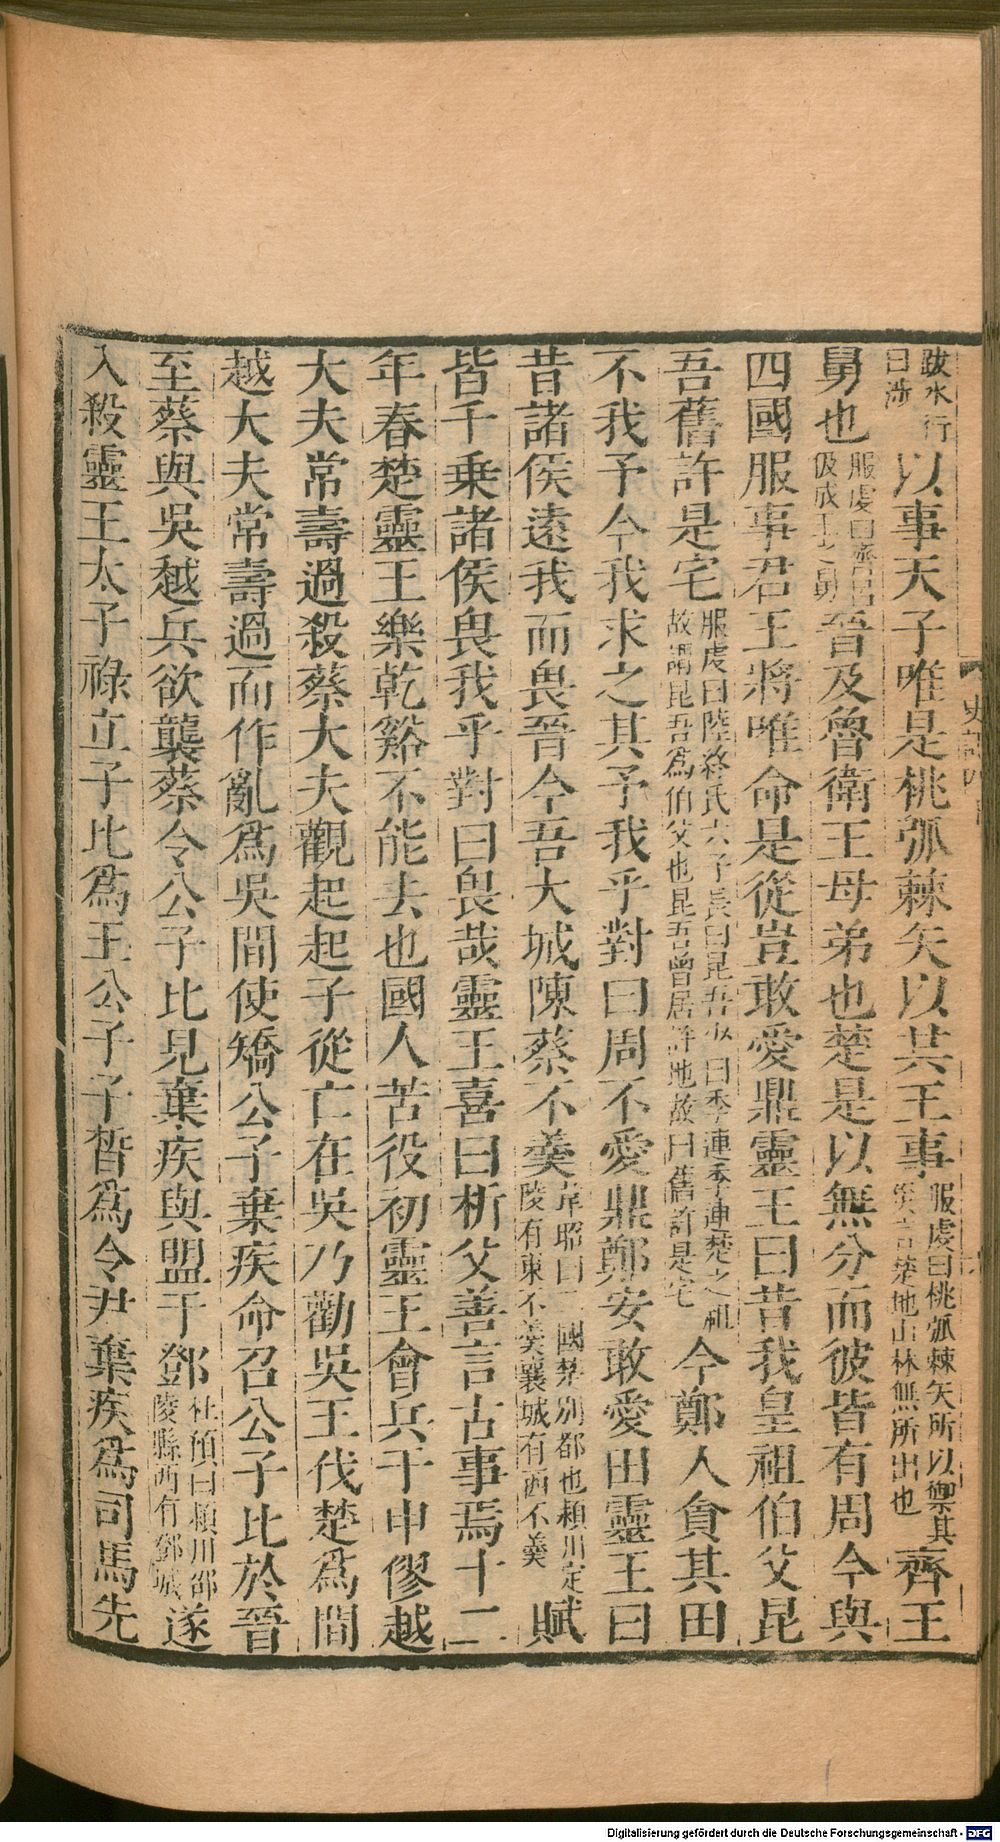 跋水行曰涉以事天子唯是桃弧棘矢以共王事服虔曰桃弧棘矢所以禦其災言楚地山林無所出也齊王
舅也服虔曰齊呂伋成王之舅晉及魯衛王母弟也楚是以無分而彼皆有周今與
四國服事君王將唯命是從豈敢愛鼎靈王曰昔我皇祖伯父昆
吾舊許是宅服虔曰陸終氏六子長曰昆吾少曰季連季連楚之祖故謂昆吾爲伯父也昆吾曾居許地故曰舊許是宅今鄭人貪其田
不我予今我求之其予我乎對曰周不愛鼎鄭安敢愛田靈王曰
昔諸侯遠我而畏晉今吾大城陳蔡不羹韋昭曰二國楚別都也潁川定陵有東不羹襄城有西不羹賦
皆千乗諸侯畏我乎對曰畏哉靈王喜曰析父善言古事焉十二
年春楚靈王樂乾谿不能去也國人苦役初靈王會兵于申僇越
大夫常壽過殺蔡大夫觀起起子從亡在吳乃勸吳王伐楚爲間
越大夫常壽過而作亂爲吳間使矯公子棄疾命召公子比於晉
至蔡與吳越兵欲襲蔡令公子比見棄疾與盟于鄧杜預曰潁川邵陵縣西有鄧城遂
入殺靈王太子祿立子比爲王公子子皙爲令尹棄疾爲司馬先
史記四
Digitalisierung gefördert durch die Deutsche Forschungsgemeinschaft - DFG